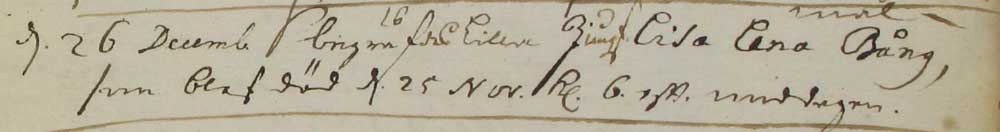 d. 26 Decemb begrafdes Lilla Jungf Lisa Lena Bång,
som blef död d. 25 Nov. Kl. 6. eft. middagen.